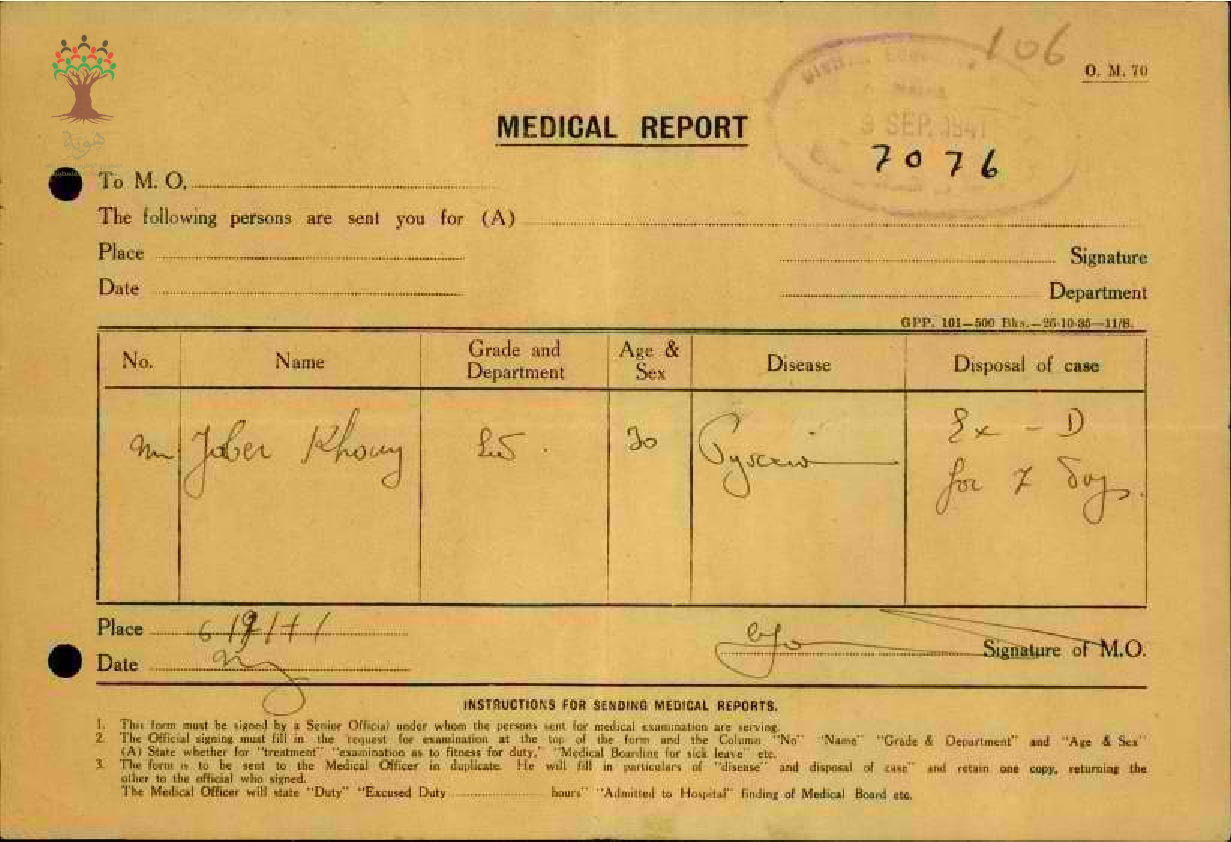 106
O. M. 70
هوية
MEDICAL REPORT
9 SEP. 1941
7076
To M. O,
The following persons are sent you for (A)
Place
Signature
Date
Department
GPP. 101—500 Bks.—26-10-35—11/8.
No. Name Grade and Department Age & Sex Disease Disposal of case
Jaber Khoury 30 Ex - D
for 7 days.
Place
Date
Signature of M.O.
INSTRUCTIONS FOR SENDING MEDICAL REPORTS.
1. This form must be signed by a Senior Official under whom the persons sent for medical examination are serving.
2. The Official signing must fill in the request for examination at the top of the form and the Column "No" "Name" "Grade & Department" and "Age & Sex"
(A) State whether for "treatment" "examination as to fitness for duty," "Medical Boarding for sick leave" etc.
3. The form is to be sent to the Medical Officer in duplicate. He will fill in particulars of "disease" and disposal of case" and retain one copy, returning the
other to the official who signed.
The Medical Officer will state "Duty" "Excused Duty hours" "Admitted to Hospital" finding of Medical Board etc.